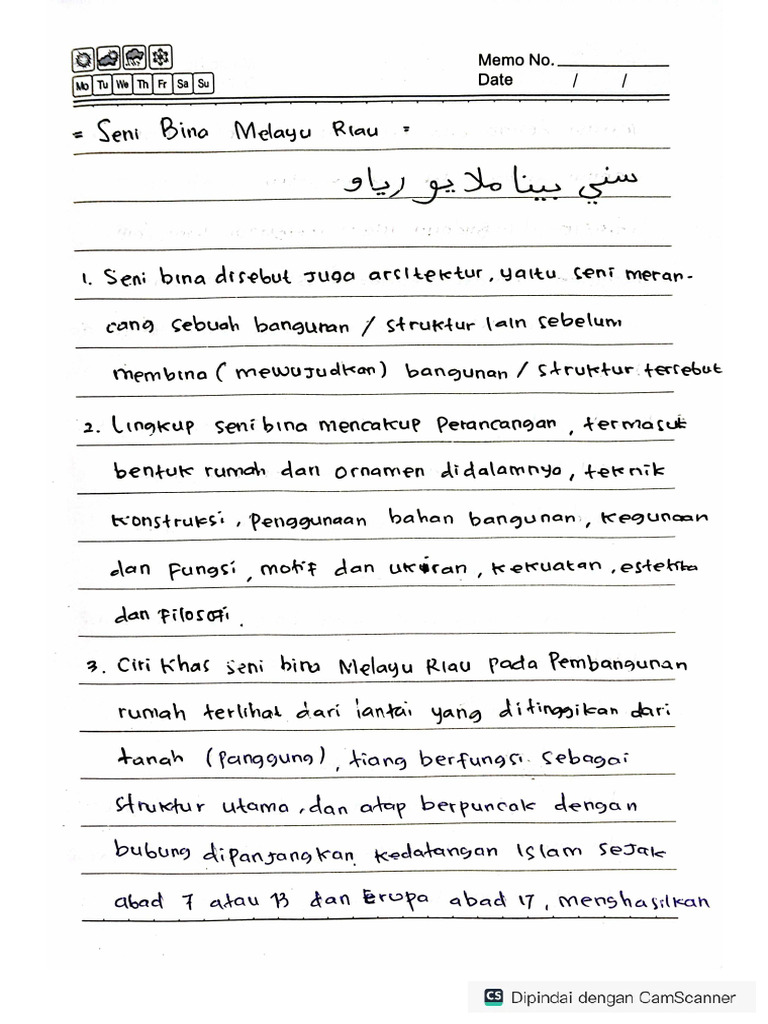 Memo No.
Mo Tu We Th Fr Sa Su
Date / /
= Seni Bina Melayu Riau =
سني بينا ملايو رياو
1. Seni bina disebut juga arsitektur, yaitu seni meran-
cang sebuah bangunan / struktur lain sebelum
membina (mewujudkan) bangunan / struktur tersebut
2. Lingkup seni bina mencakup Perancangan, termasuk
bentuk rumah dan ornamen didalamnya, teknik
konstruksi, Penggunaan bahan bangunan, kegunaan
dan fungsi, motif dan ukiran, kekuatan, estetika
dan Filosofi.
3. Ciri khas seni bina Melayu Riau pada Pembangunan
rumah terlihat dari lantai yang ditinggikan dari
tanah (panggung), tiang berfungsi sebagai
struktur utama, dan atap berpuncak dengan
bubung dipanjangkan. kedatangan Islam sejak
abad 7 atau 13 dan Eropa abad 17, menghasilkan
CS Dipindai dengan CamScanner